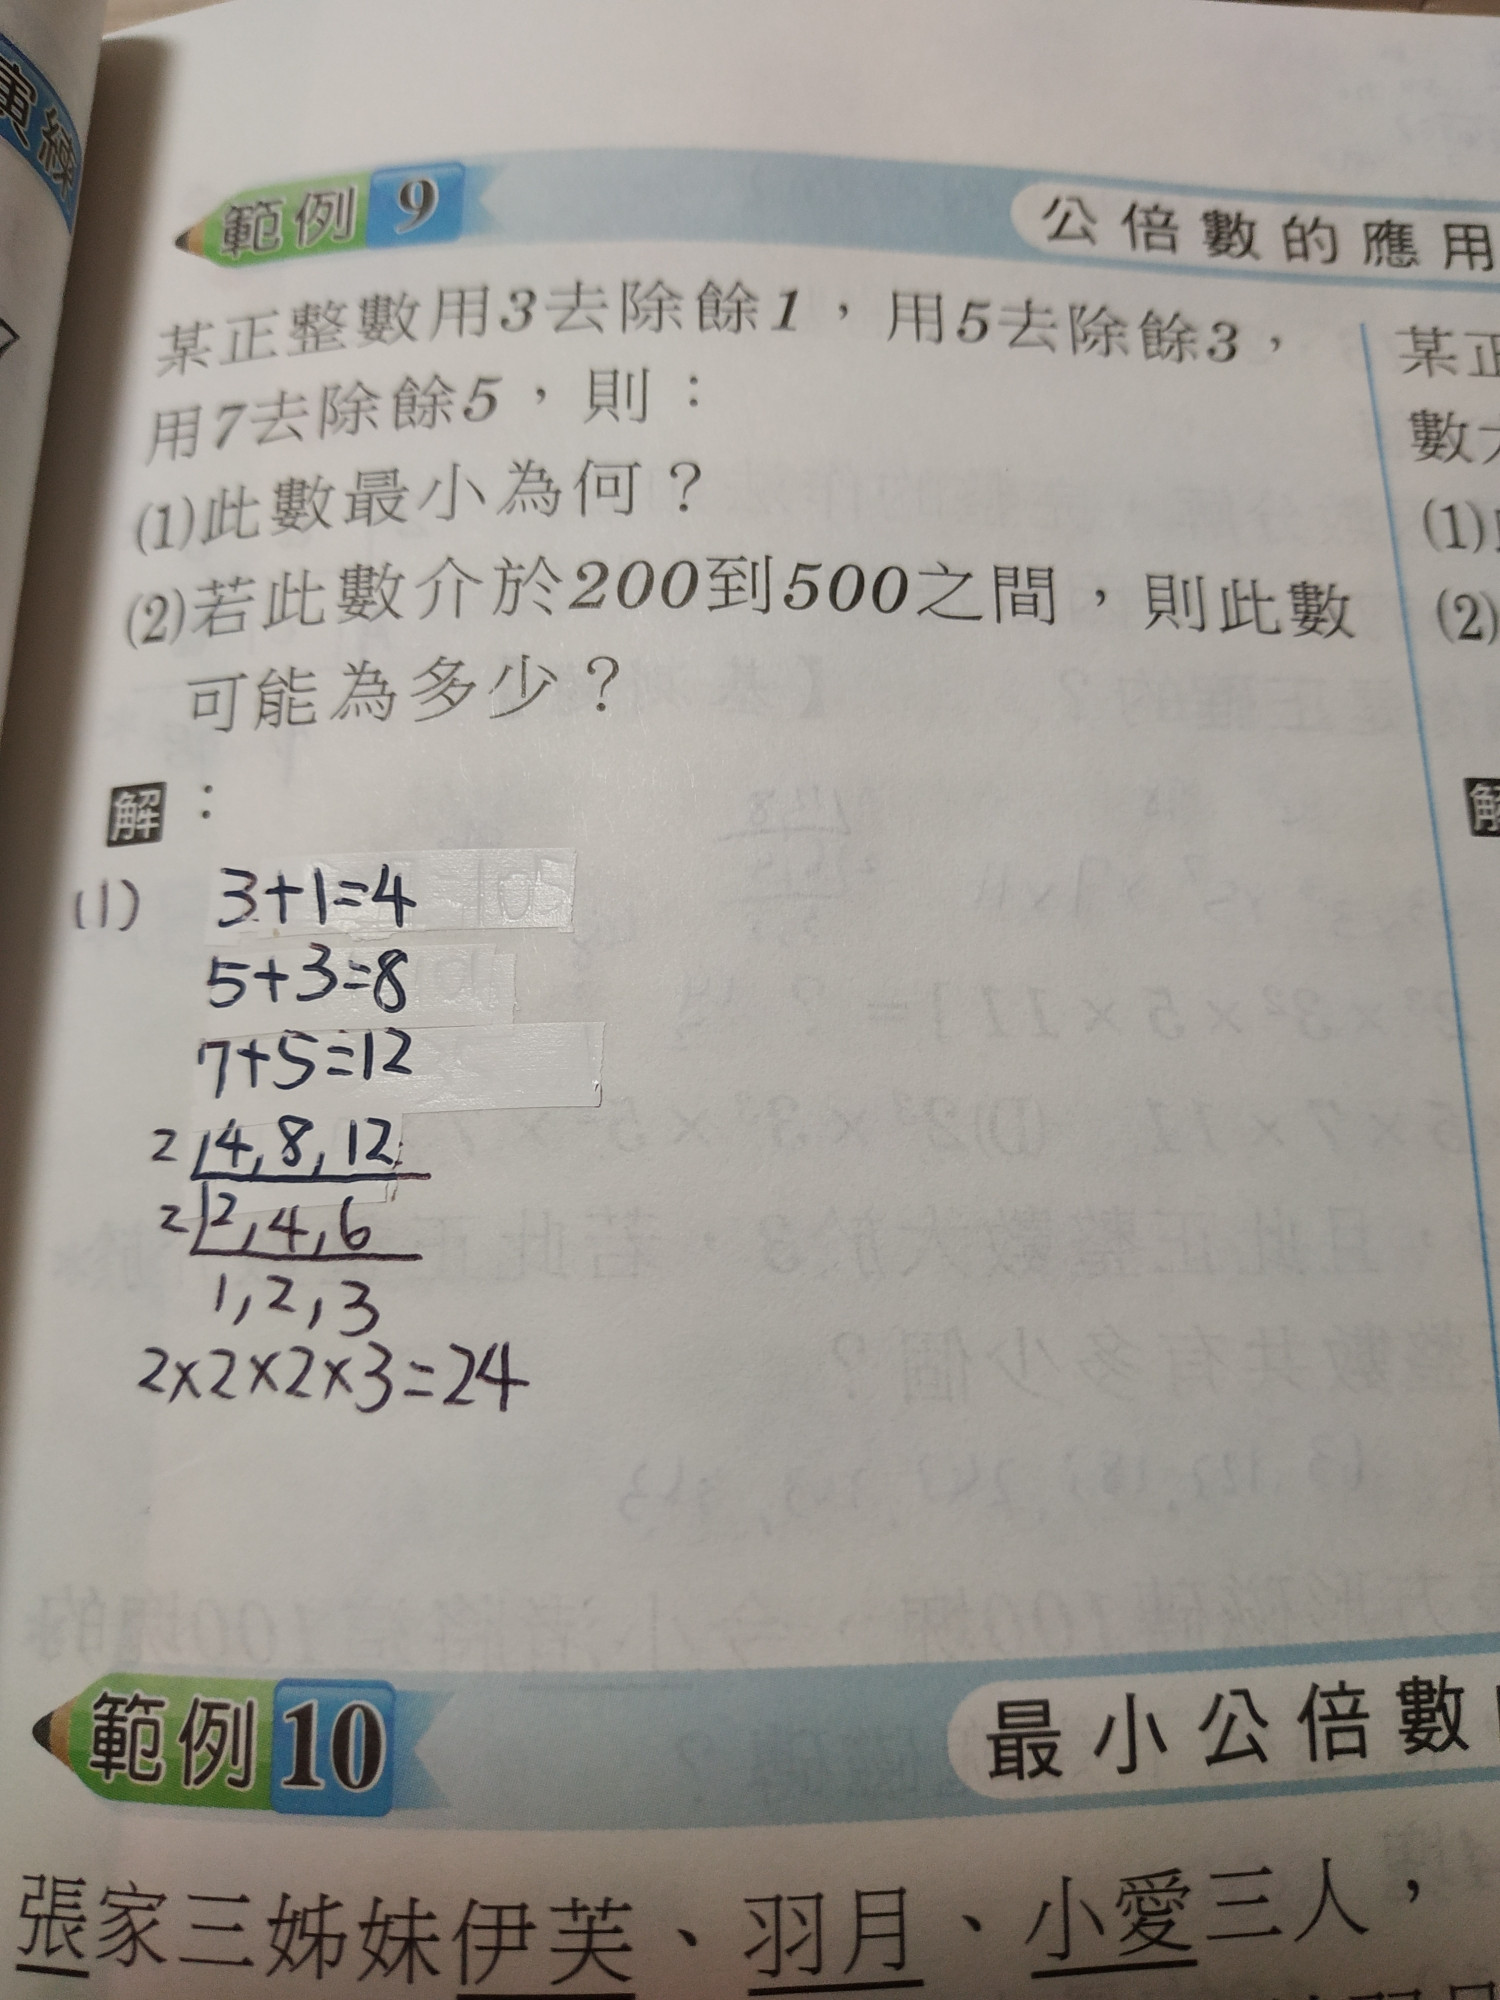 演練
範例 9
公倍數的應用
某正整數用3去除餘1，用5去除餘3，
用7去除餘5，則：
(1)此數最小為何？
(2)若此數介於200到500之間，則此數
可能為多少？
解：
(1) 3+1=4
5+3=8
7+5=12
2 4,8,12
2 2,4,6
1,2,3
2×2×2×3=24
某正
數
(1)
(2)
解
範例 10
最小公倍數
張家三姊妹伊芙、羽月、小愛三人，